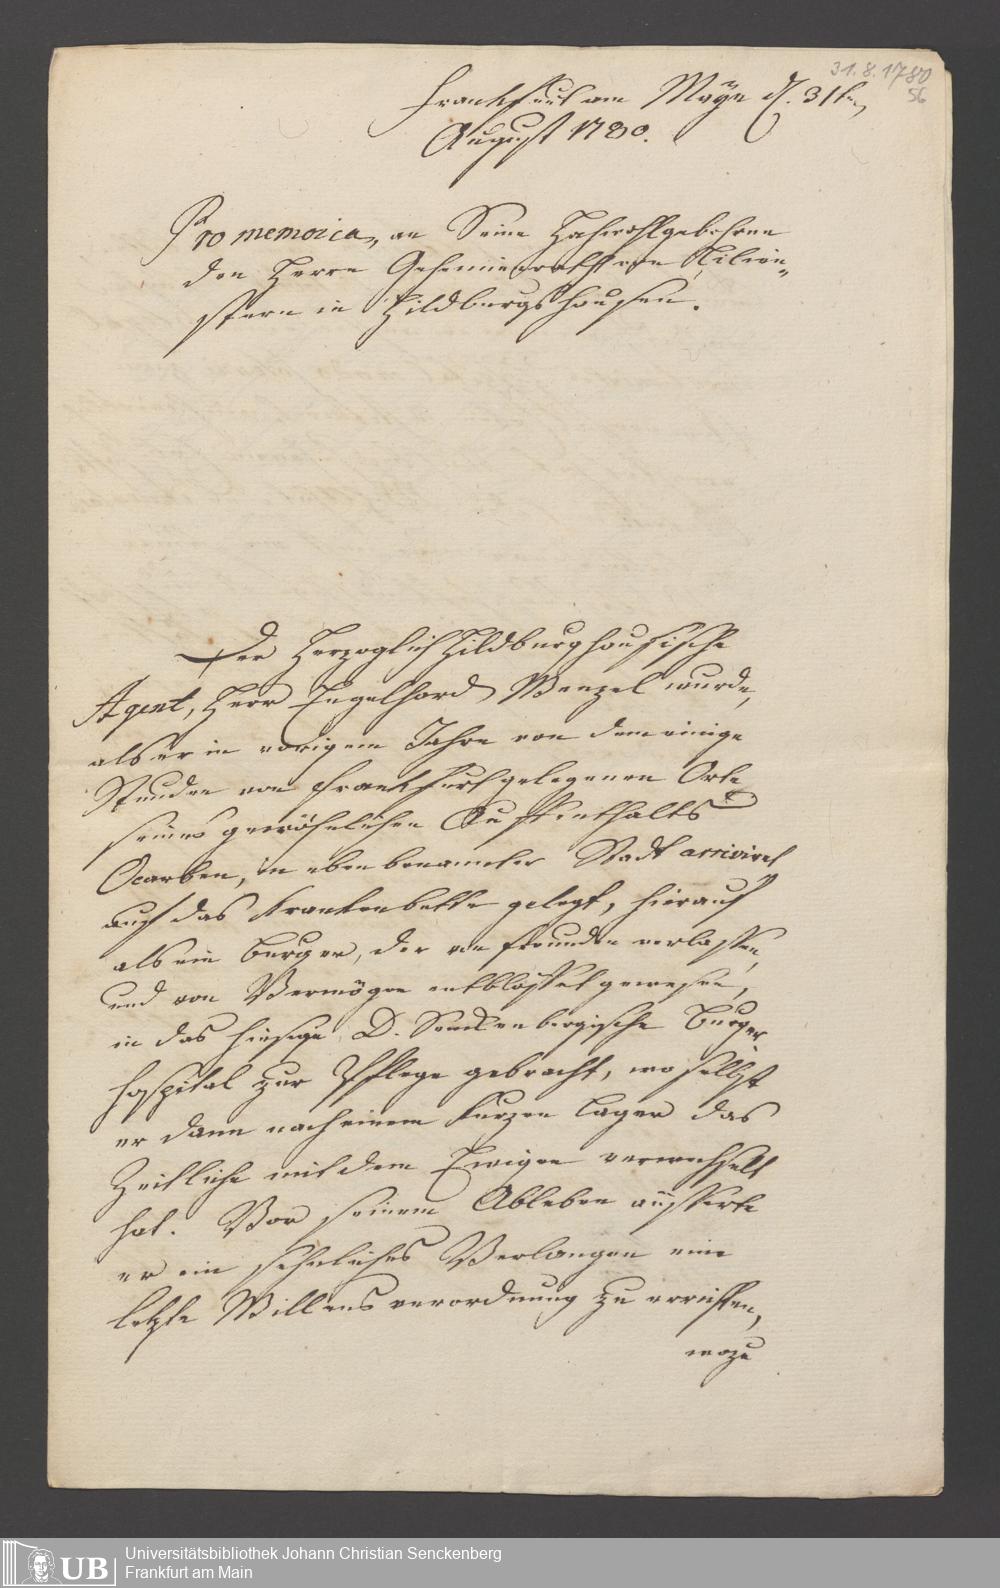 31.8.1780
56
Franckfurt am Mayn d. 31ten
August 1780.
Pro memoria, an Seine Hochwohlgebohren
den Herrn Geheimerath von Lilien-
stern in Hildburgshausen.
Der Herzoglich Hildburghausische
Agent, Herr Engelhard Wenzel wurde,
als er in vorigem Jahre von dem einige
Stunden von Franckfurth gelegenen Orte
seines gewöhnlichen Auffenthalts
Ocarben, in eben benannter Stadt arrivirt
auf das Krankenbette gelegt, hierauf
als ein Burger, der von Freunden verlassen,
und von Vermögen entblößet gewesen,
in das hiesige D. Senckenbergische Burger
hospital zur Pflege gebracht, woselbst
er dann nach einem kurzen Lager das
Zeitliche mit dem Ewigen verwechselt
hat. Vor seinem Ableben äusserte
er ein sehnliches Verlangen eine
letzte Willensverordnung zu errichten,
wozu
UB
Universitätsbibliothek Johann Christian Senckenberg
Frankfurt am Main